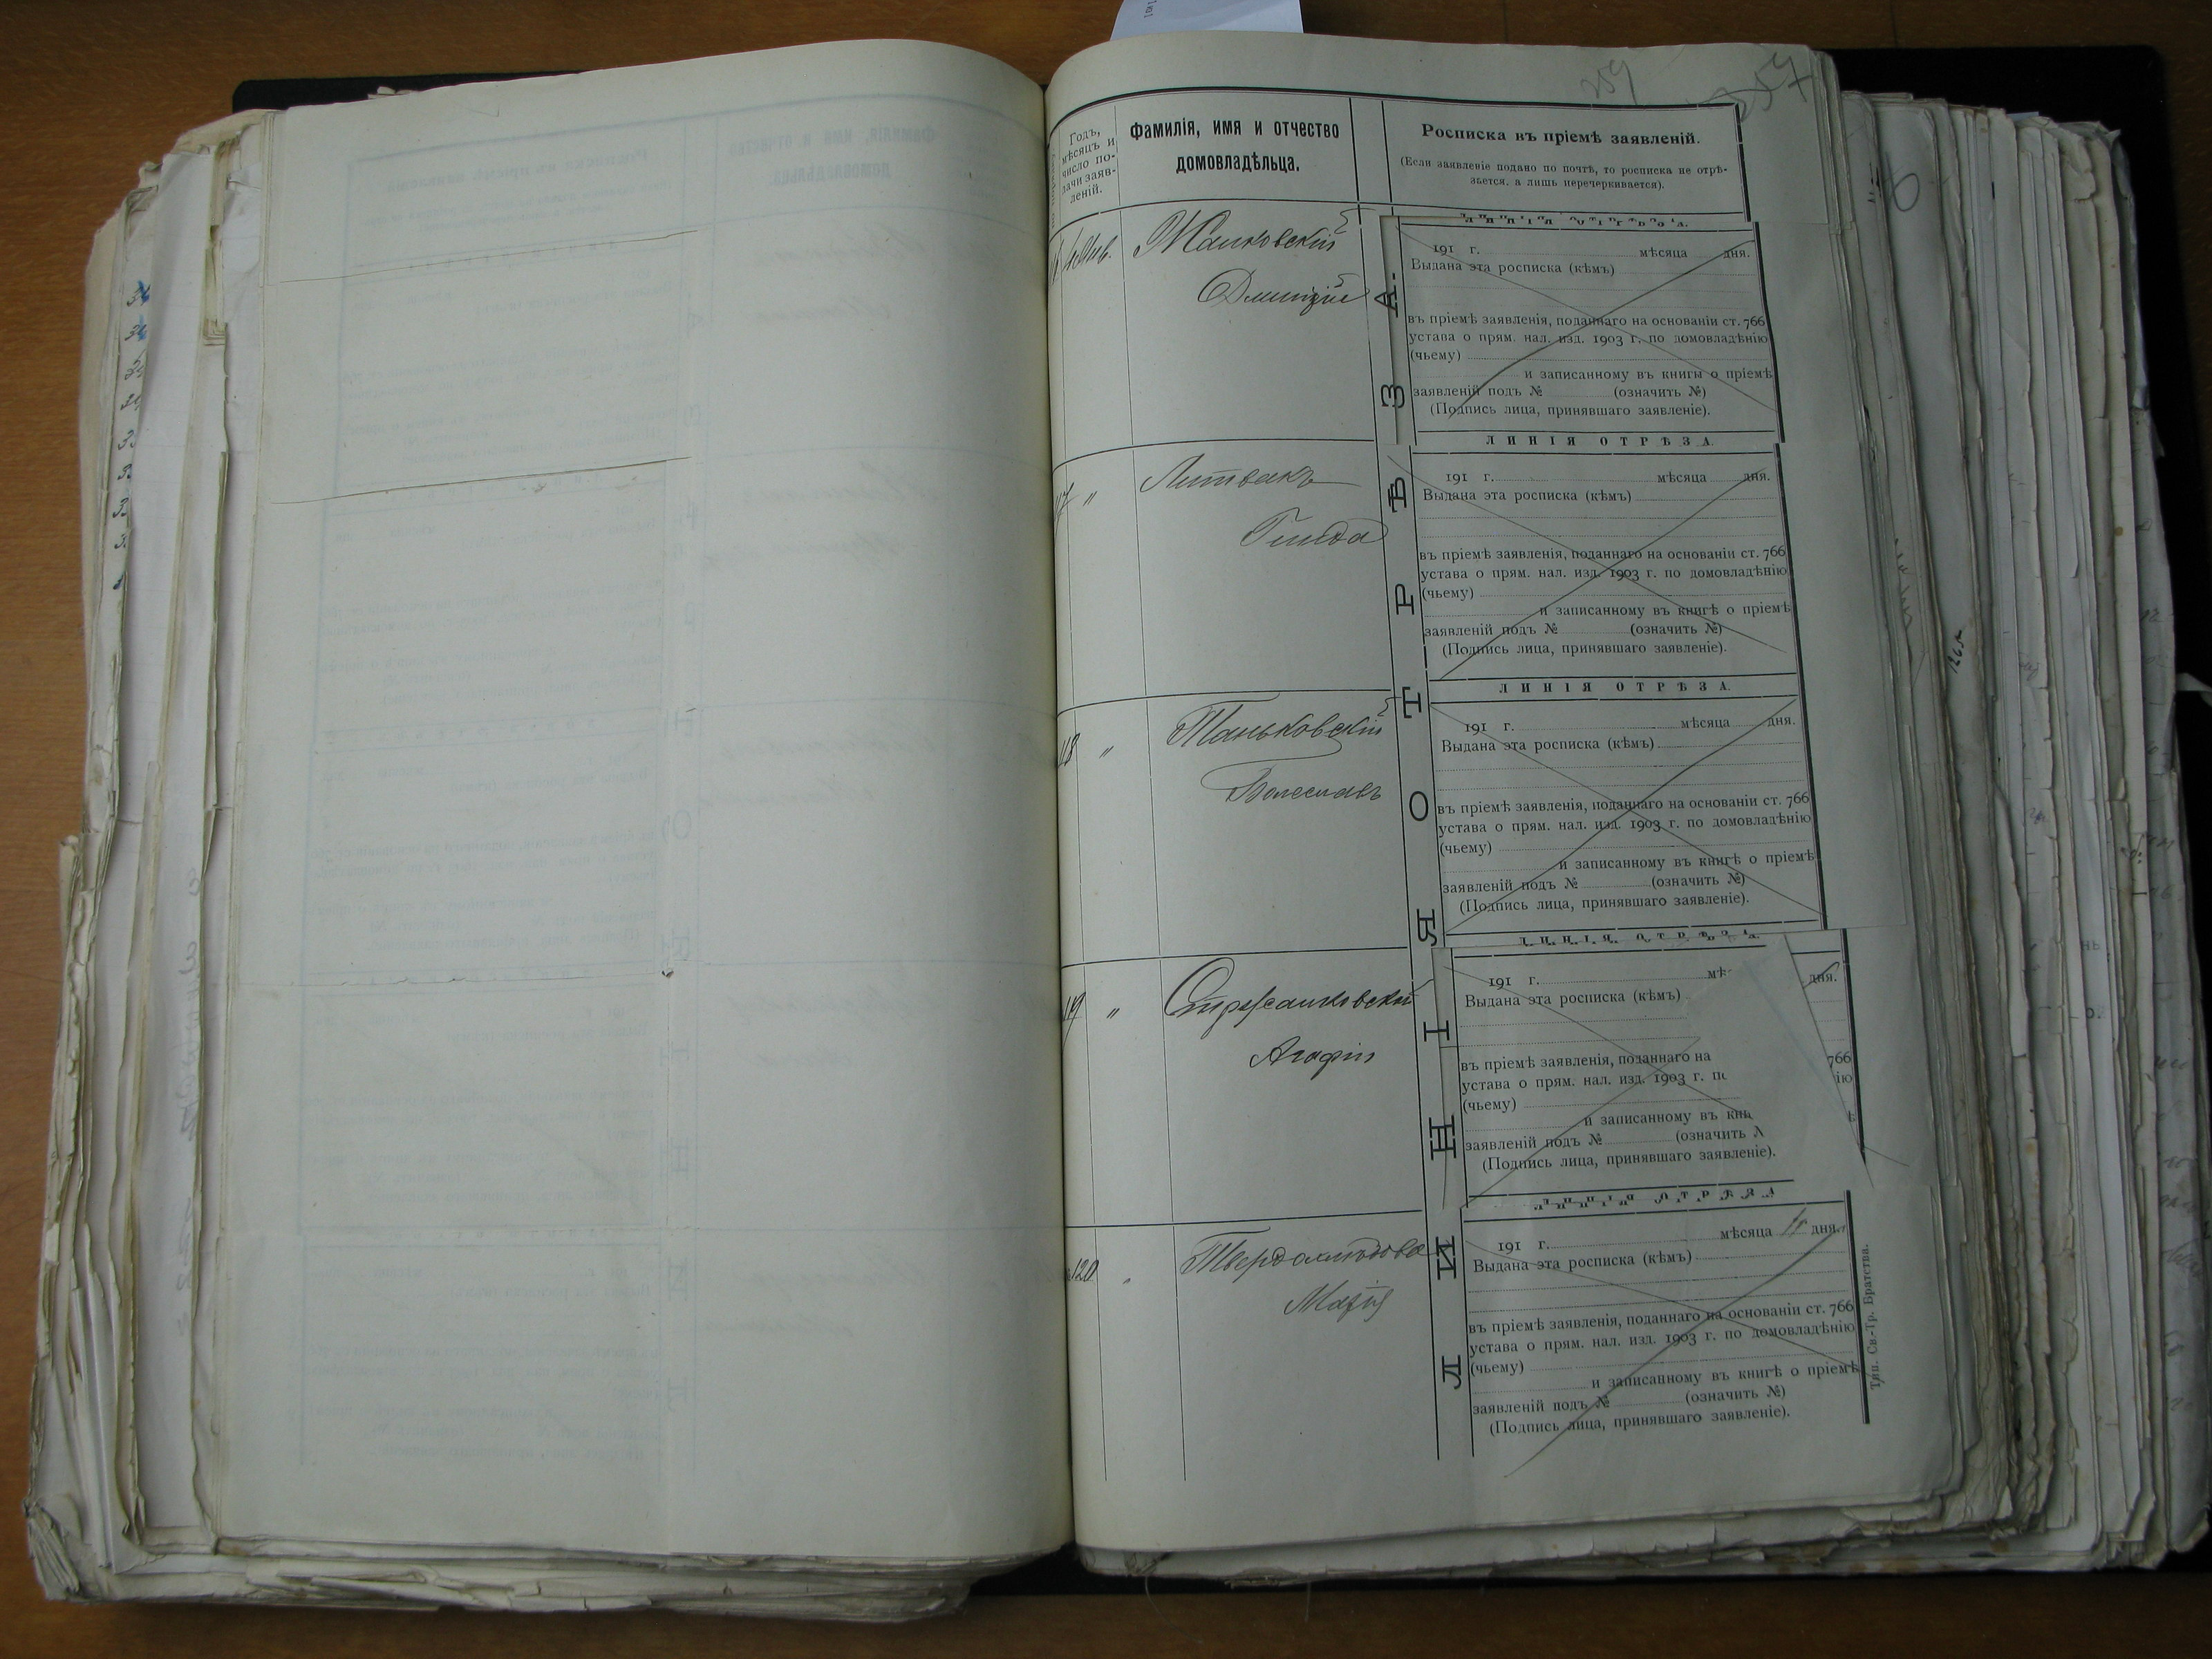 259
357
Годъ, мѣсяцъ и число подачи заявленій.
Фамилія, имя и отчество
домовладѣльца.
Росписка въ пріемѣ заявленій.
(Если заявленіе подано по почтѣ, то росписка не отрѣ-
зается, а лишь перечеркивается).
Линія отрѣза.
Янв.
Дмитрій
191 г. мѣсяца дня.
Выдана эта росписка (кѣмъ)
въ пріемѣ заявленія, поданнаго на основаніи ст. 766
устава о прям. нал. изд. 1903 г. по домовладѣнію
(чьему)
и записанному въ книгы о пріемѣ
заявленій подъ № (означить №)
(Подпись лица, принявшаго заявленіе).
ЛИНІЯ ОТРѢЗА.
117 " Литвакъ
Гилда
191 г. мѣсяца дня.
Выдана эта росписка (кѣмъ)
въ пріемѣ заявленія, поданнаго на основаніи ст. 766
устава о прям. нал. изд. 1903 г. по домовладѣнію
(чьему)
и записанному въ книгѣ о пріемѣ
заявленій подъ № (означить №)
(Подпись лица, принявшаго заявленіе).
ЛИНІЯ ОТРѢЗА.
118 " Таньковскій
Болеславъ
191 г. мѣсяца дня.
Выдана эта росписка (кѣмъ)
въ пріемѣ заявленія, поданнаго на основаніи ст. 766
устава о прям. нал. изд. 1903 г. по домовладѣнію
(чьему)
и записанному въ книгѣ о пріемѣ
заявленій подъ № (означить №)
(Подпись лица, принявшаго заявленіе).
ЛИНІЯ ОТРѢЗА.
119 "
191 г. мѣ дня.
Выдана эта росписка (кѣмъ)
въ пріемѣ заявленія, поданнаго на 766
устава о прям. нал. изд. 1903 г. по ію
(чьему)
и записанному въ кни ѣ
заявленій подъ № (означить №
(Подпись лица, принявшаго заявленіе).
ЛИНІЯ ОТРѢЗА
120 " Твердохлѣбова
Марія
191 г. мѣсяца 11 дня.
Выдана эта росписка (кѣмъ)
въ пріемѣ заявленія, поданнаго на основаніи ст. 766
устава о прям. нал. изд. 1903 г. по домовладѣнію
(чьему)
и записанному въ книгѣ о пріемѣ
заявленій подъ № (означить №)
(Подпись лица, принявшаго заявленіе).
ЛИНІЯ ОТРѢЗА.
Тип. Св.-Тр. Братства.